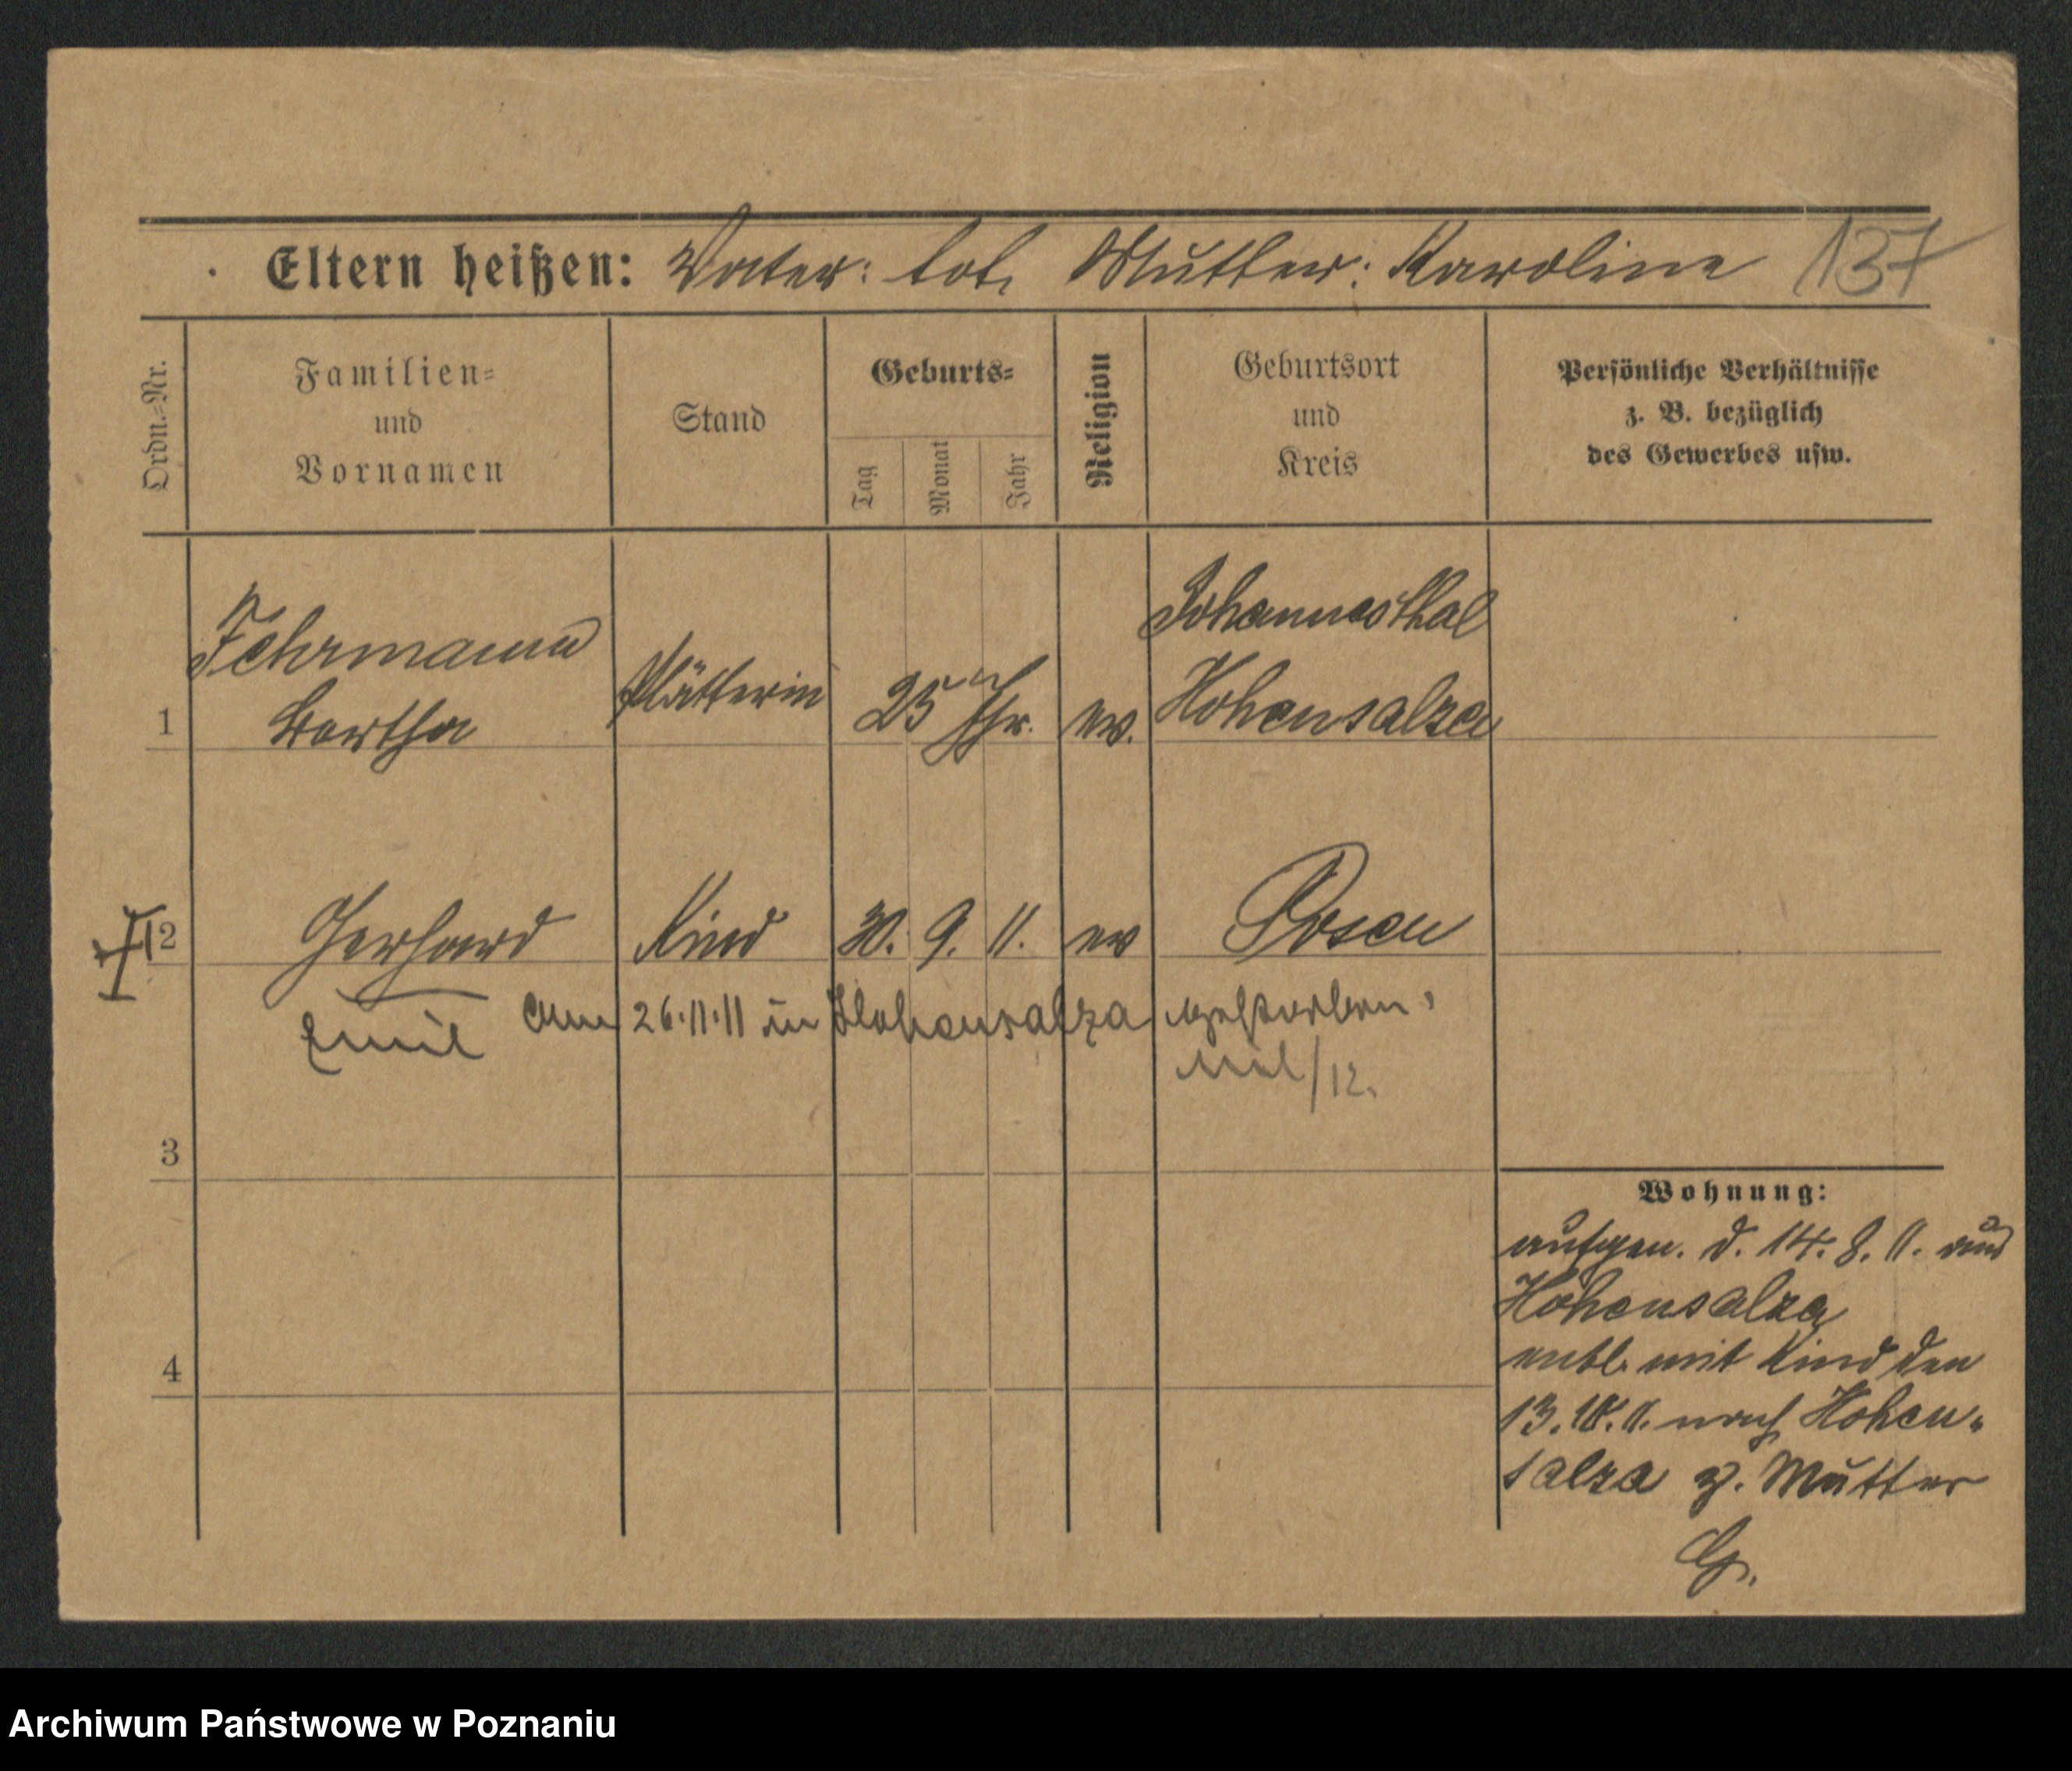 Eltern heißen: Vater: tot, Mutter: Karoline 137
Ordn.-Nr.
Familien-
und
Vornamen
Stand
Geburts-
Tag
Monat
Jahr
Religion
Geburtsort
und
Kreis
Persönliche Verhältnisse
z. B. bezüglich
des Gewerbes usw.
1
Fehrmann
Bertha
Plätterin
25 Jhr.
ev.
Johannesthal
Hohensalza
2
Gerhard
Kind
30. 9. 11.
ev
Posen
Emil
am 26.11.11 in Hohensalza gestorben.
/12.
3
4
Wohnung:
aufgen. d. 14. 8. 11. aus
Hohensalza
entl. mit Kind den
13.10.11. nach Hohen-
salza z. Mutter
G.
Archiwum Państwowe w Poznaniu